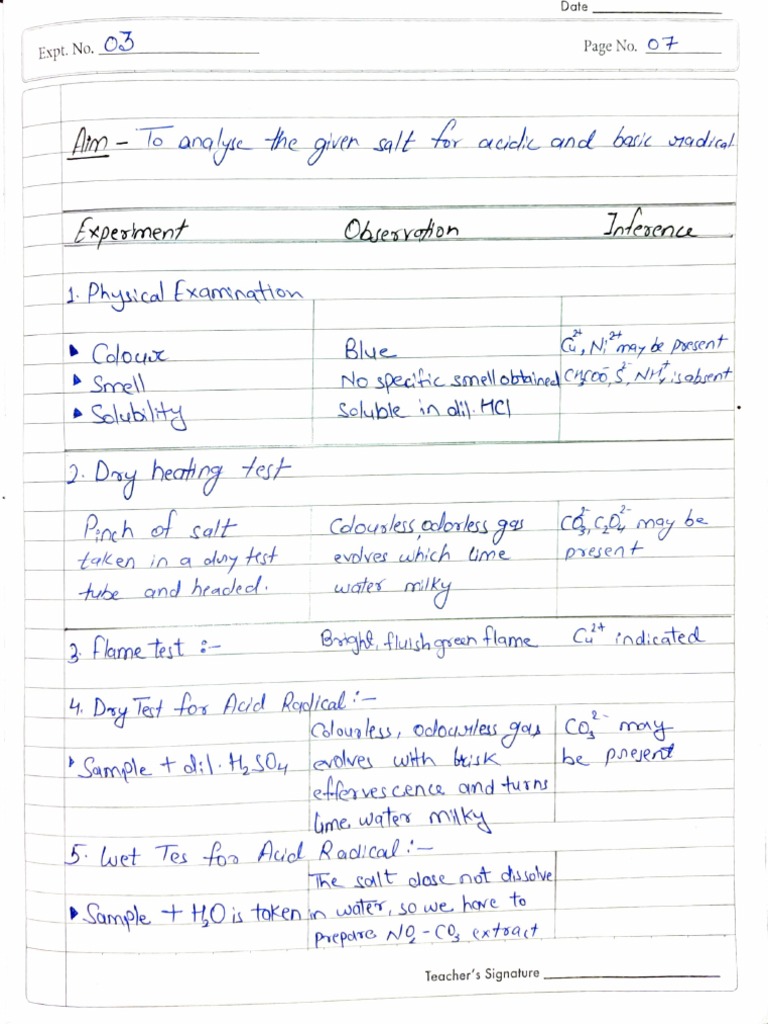 Date
Expt. No. 03
Page No. 07
Aim - To analyse the given salt for acidic and basic radical
Experiment Observation Inference
1. Physical Examination
Colour Blue Cu²⁺, Ni²⁺ may be present
Smell No specific smell obtained CH₃COO⁻, S²⁻, NH₄⁺ is absent
Solubility Soluble in dil. HCl
2. Dry heating test
Pinch of salt Colourless, odorless gas CO₃²⁻, C₂O₄²⁻ may be
taken in a dry test evolves which lime present
tube and headed. water milky
3. Flame test :- Bright, fluish green flame Cu²⁺ indicated
4. Dry Test for Acid Radical :-
Colourless, odourless gas CO₃²⁻ may
Sample + dil. H₂SO₄ evolves with brisk be present
effervescence and turns
lime water milky
5. Wet Tes for Acid Radical :-
The salt dose not dissolve
Sample + H₂O is taken in water, so we have to
prepare NO₂-CO₃ extract
Teacher's Signature